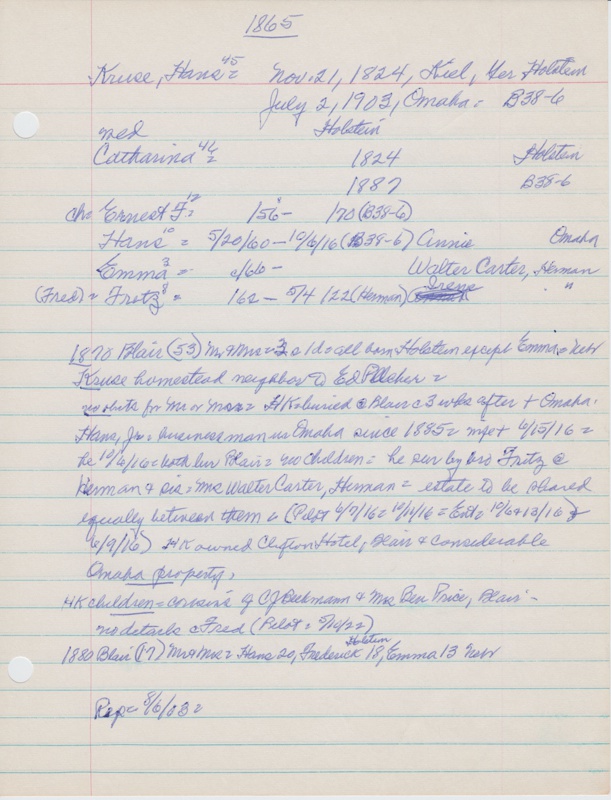 1865
Kruse, Hans 45 = Nov. 21, 1824, Kiel, Ger Holstein
July 2, 1903, Omaha = B38-6
med Holstein
Catharina 46 = 1824 Holstein
1887 B38-6
ch = Ernest F 12 = '56 - '70 (B38-6)
Hans 10 = 5/20/60 - 10/6/16 (B38-6) Annie Omaha
Emma 3 = c/66 - Walter Carter, Herman
(Fred) = Fritz 8 = '62 - 5/4/22 (Herman) Irene "
1870 Blair (53) Mr & Mrs = 3 s 1 d = all born Holstein except Emma = Nebr
Kruse homestead neighbor Ed Pilcher =
no obits for Mr or Mrs = HK buried @ Blair c 3 wks after + Omaha.
Hans, Jr = business man in Omaha since 1885 = wife + 4/15/16 =
he 10/6/16 = both bur Blair = no children = he sur by bro Fritz @
Herman & sis = Mrs Walter Carter, Herman = estate to be shared
equally between them = (Pilot 4/7/16 = 10/11/16 = Ent = 10/6 & 13/16 &
6/9/16) HK owned Clifton Hotel, Blair & considerable
Omaha property,
HK children = cousins of CJ Beckmann & Mrs Ben Price, Blair -
no details c Fred (Pilot = 5/10/22)
1880 Blair (17) Mr & Mrs = Hans 20, Frederick 18, Holstein Emma 13 Nebr
Rep = 8/6/03 =